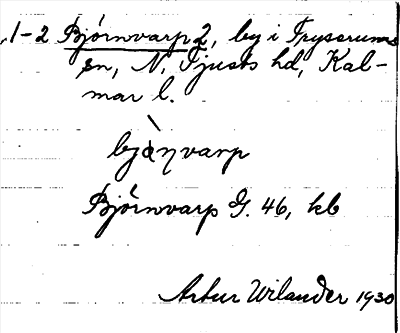 1-2 Björnvarp 2, by i Tryserums
sn, N. Tjusts hd, Kal-
mar l.
bjὰηvarp
Björnvarp G. 46, kb
Artur Wilander 1930